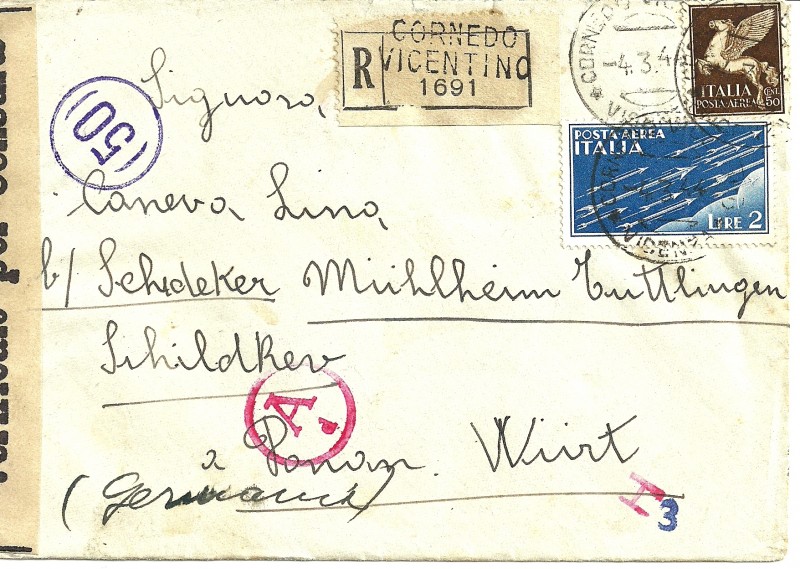 CORNEDO
R VICENTINO
1691
CORNEDO VIC
-4.3.4
VICENZA
ITALIA
POSTA-AEREA
CENT. 50
POSTA-AEREA
ITALIA
LIRE 2
VICENZA
(50)
Signora
Caneva Lina
b/ Schdeker Mühlheim Tuttlingen
Schildkev
A
d
a Donan. Würt
(Germania)
H
3
per censura